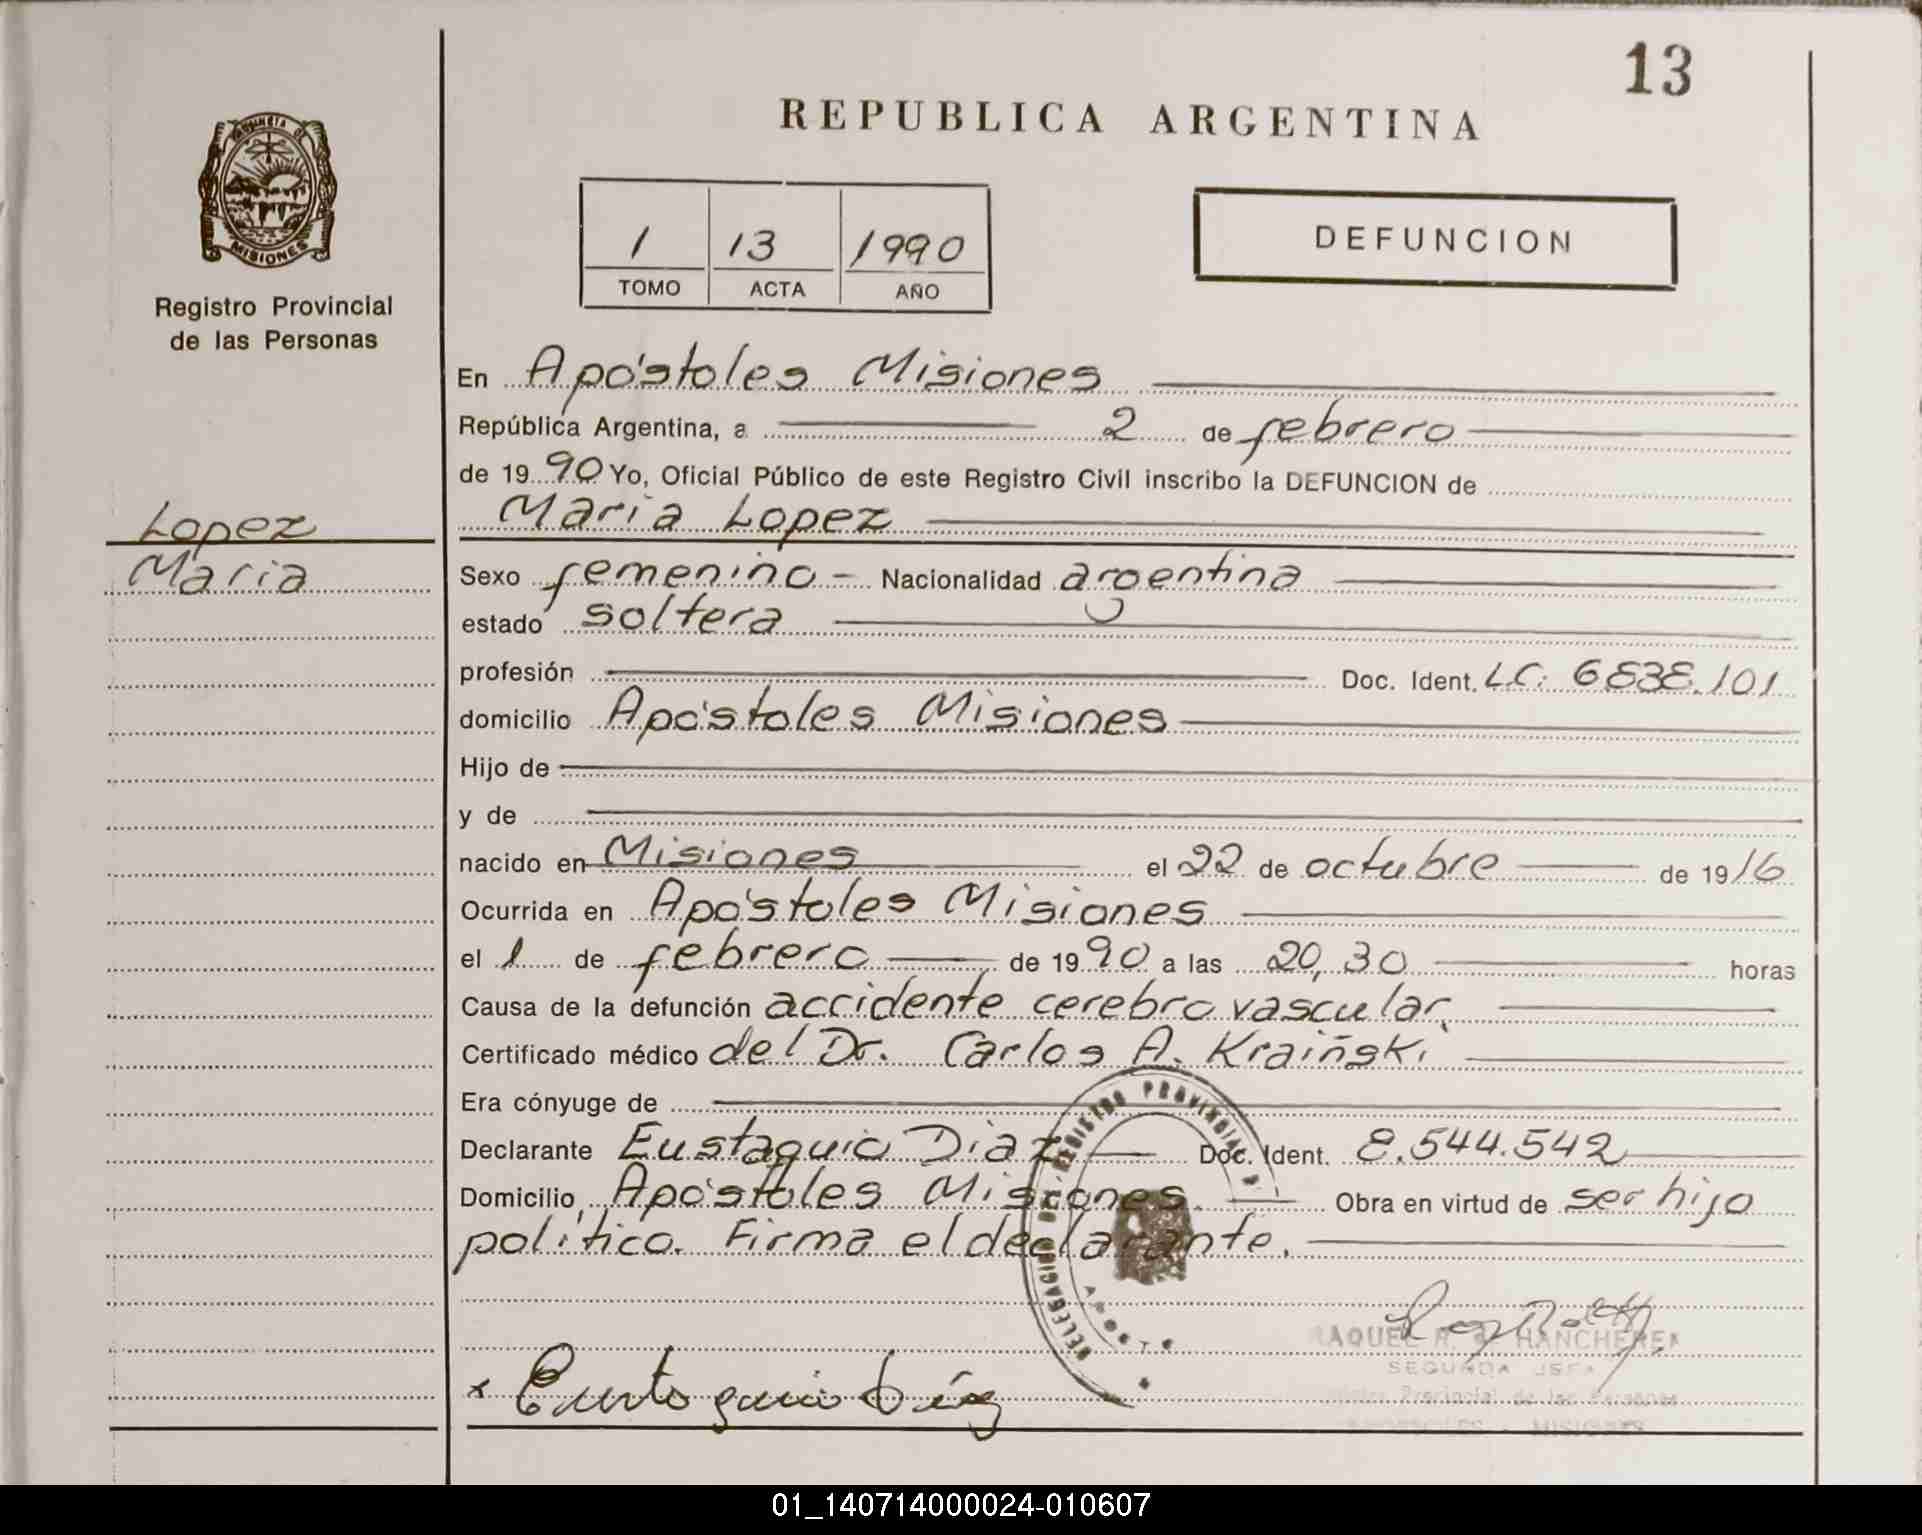 13
REPUBLICA ARGENTINA
MISIONES
Registro Provincial
de las Personas
1 13 1990
TOMO ACTA AÑO
DEFUNCION
Lopez
Maria
En Apóstoles Misiones
República Argentina, a 2 de febrero
de 1990 Yo, Oficial Público de este Registro Civil inscribo la DEFUNCION de
Maria Lopez
Sexo femenino - Nacionalidad argentina
estado soltera
profesión Doc. Ident. L.C. 6838.101
domicilio Apóstoles Misiones
Hijo de
y de
nacido en Misiones el 22 de octubre de 1916
Ocurrida en Apóstoles Misiones
el 1 de febrero de 1990 a las 20,30 horas
Causa de la defunción accidente cerebro vascular,
Certificado médico del Dr. Carlos A. Kraiñski
Era cónyuge de
Declarante Eustaquio Diaz Doc. Ident. 8.544.542
Domicilio Apóstoles Misiones. Obra en virtud de ser hijo
político. Firma el declarante.
DELEGACION DEL REGISTRO PROVINCIAL
SEGUNDA JEFA
Provincial de las Personas
MISIONES
x Eustaquio Díaz
01_140714000024-010607